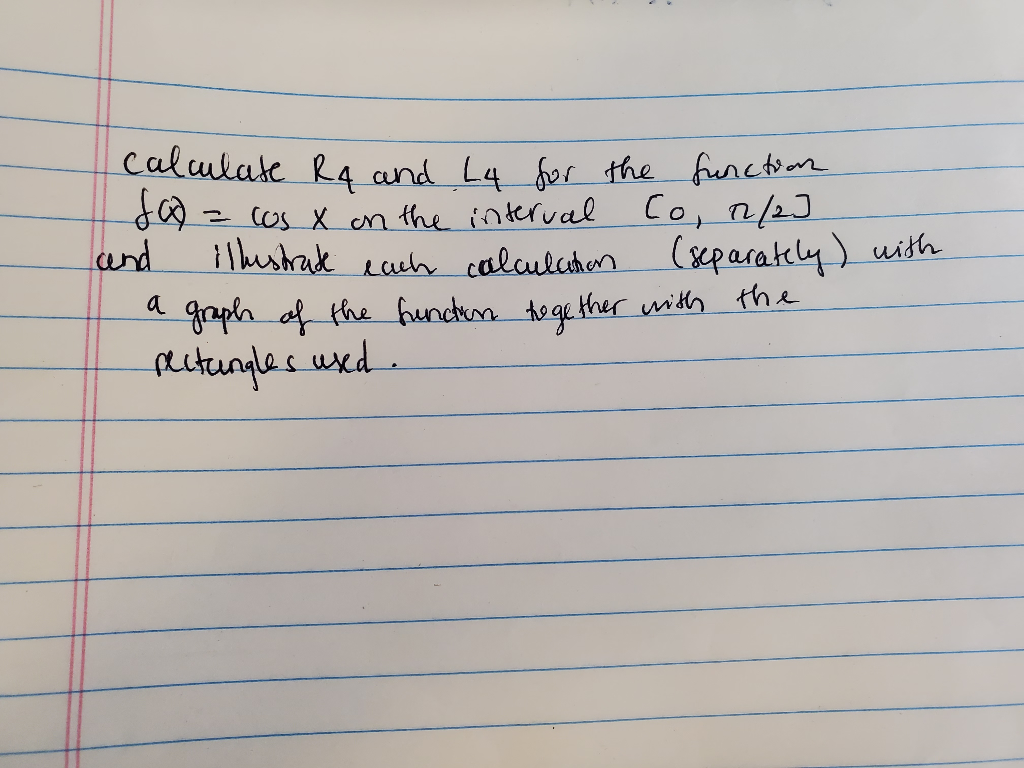 calculate R4 and L4 for the function
f(x) = cos x on the interval [0, π/2]
and illustrate each calculation (separately) with
a graph of the function together with the
rectangles used.